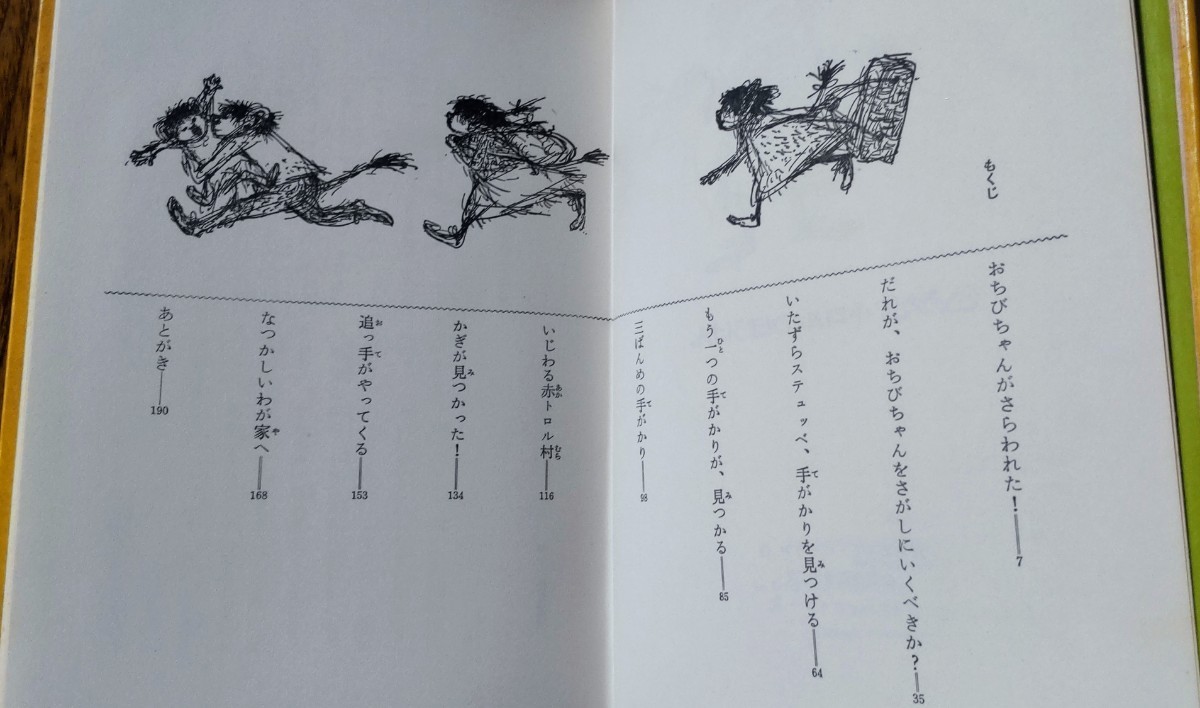 もくじ
おちびちゃんがさらわれた!——7
だれが、おちびちゃんをさがしにいくべきか?——35
いたずらステュッペ、手がかりを見つける——64
もう一つの手がかりが、見つかる——85
三ばんめの手がかり——98
いじわる赤トロル村——116
かぎが見つかった!——134
追っ手がやってくる——153
なつかしいわが家へ——168
あとがき——190